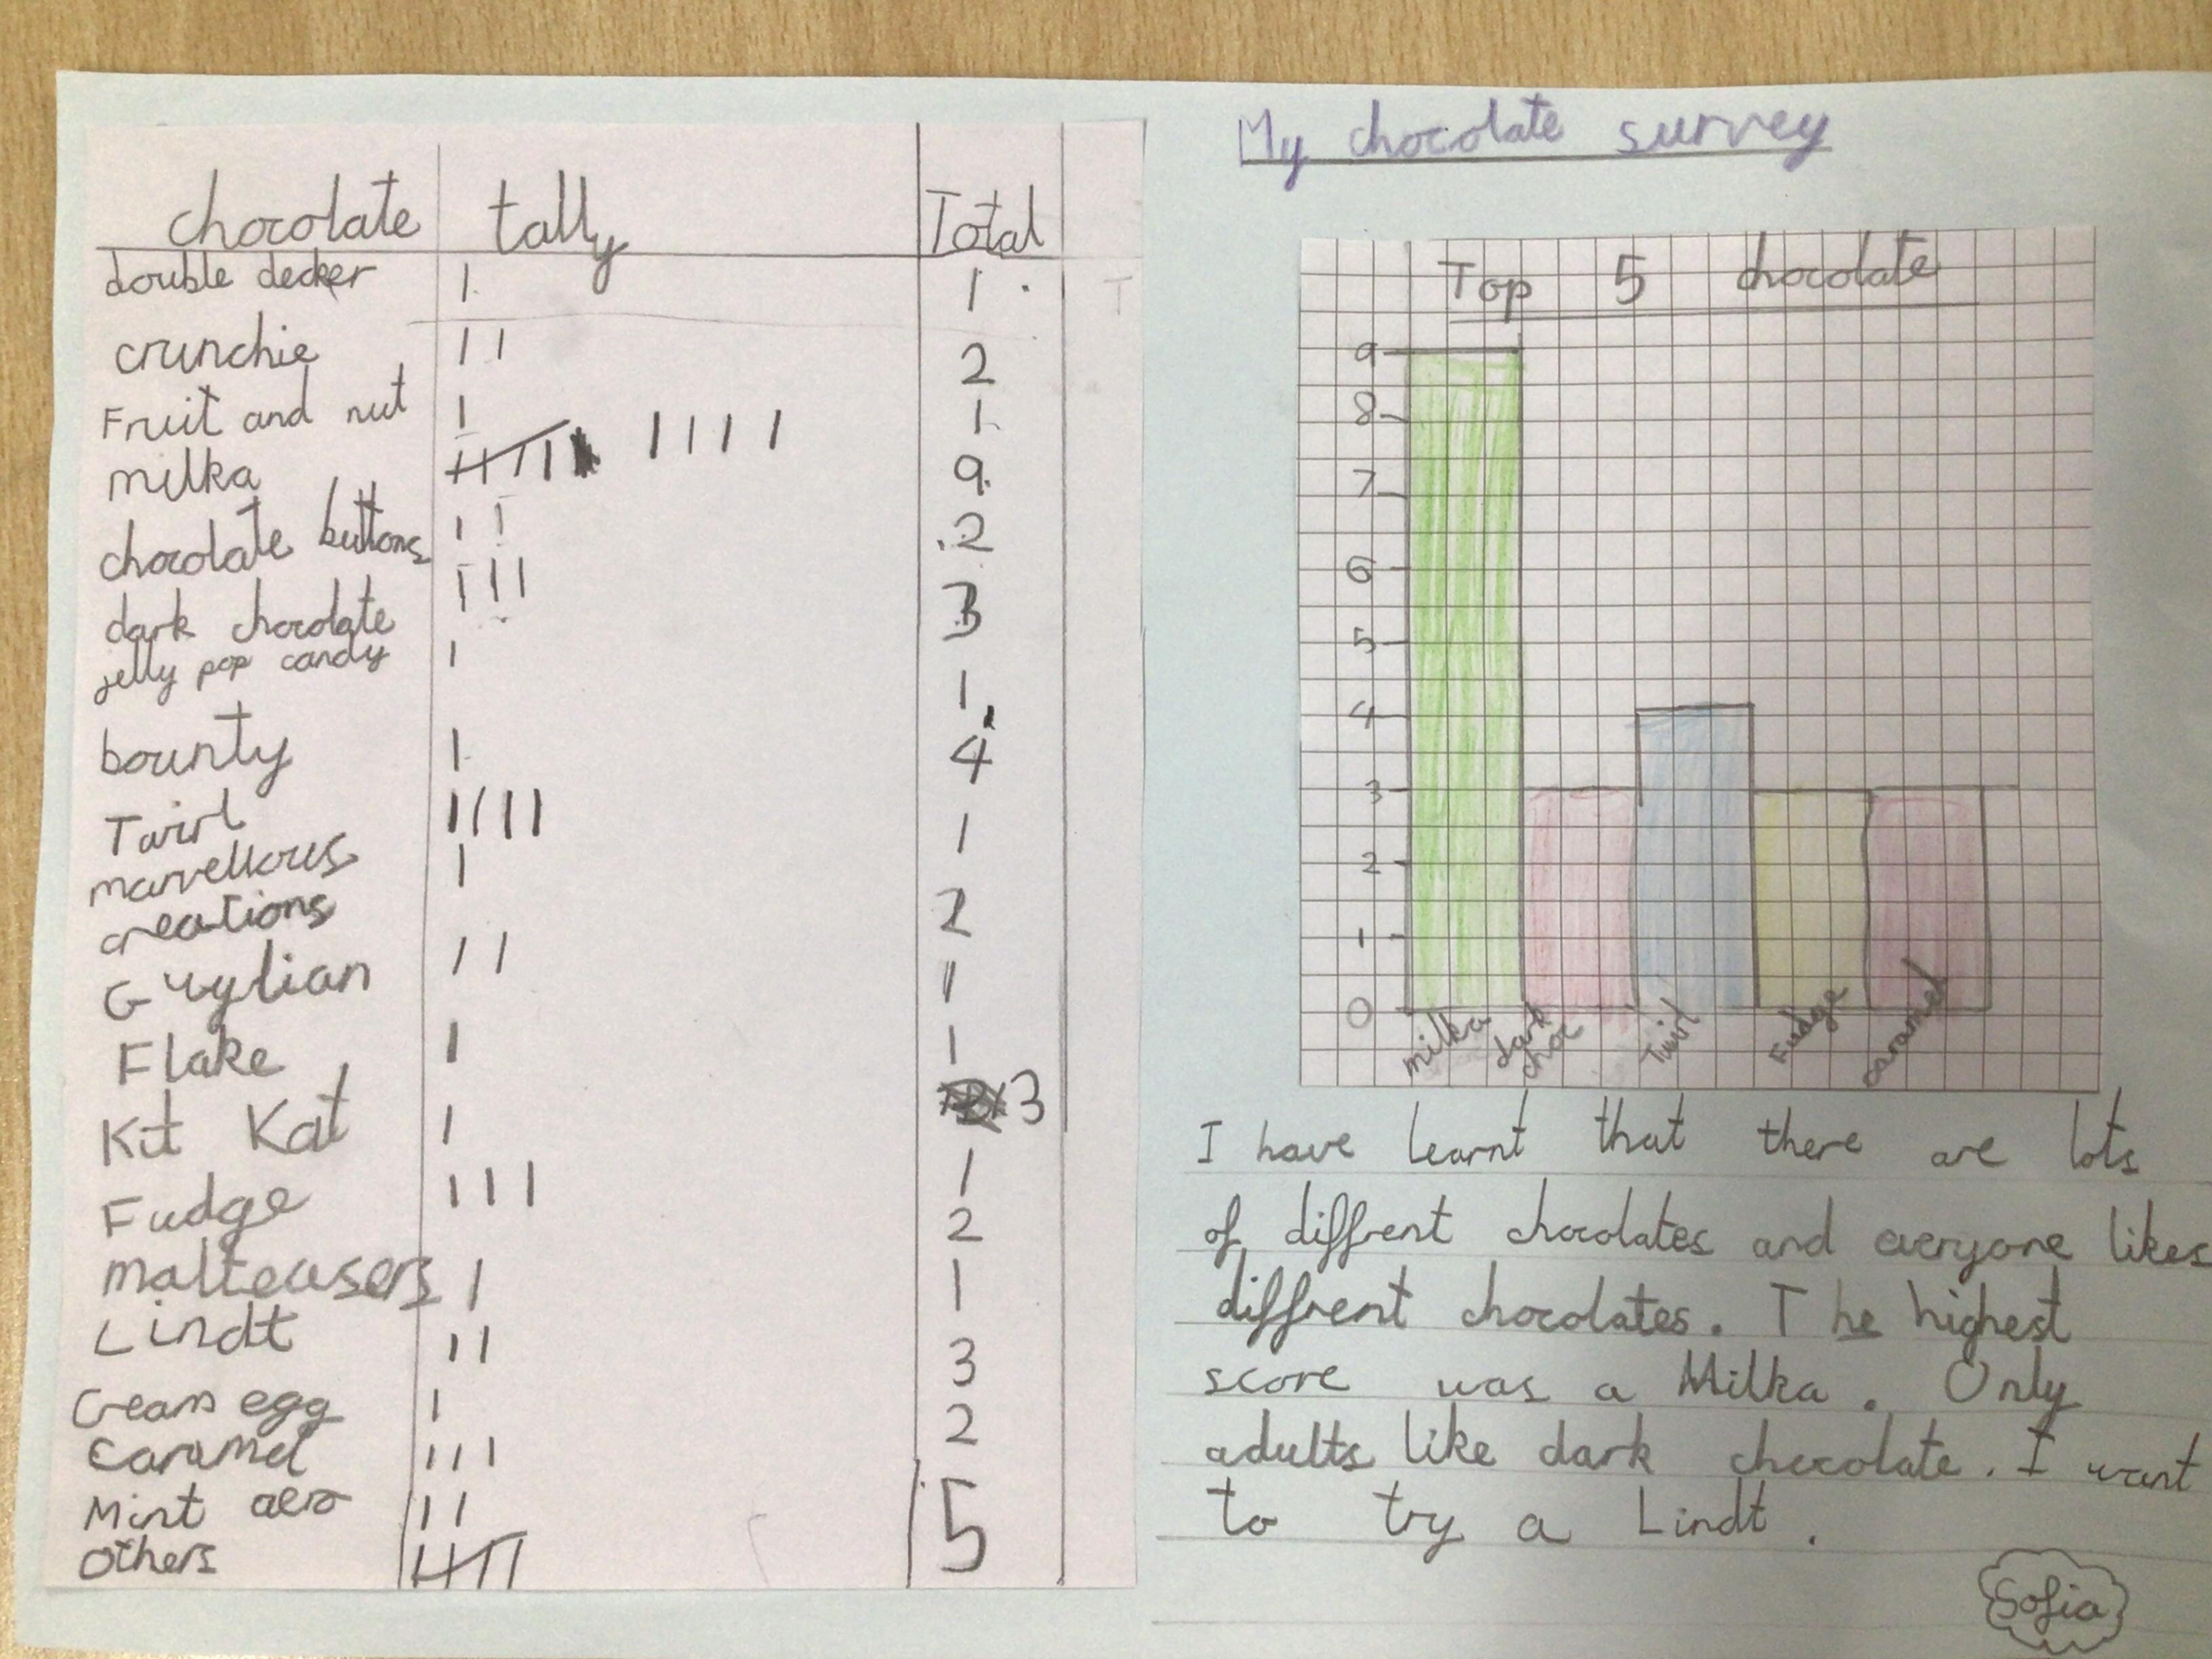 chocolate tally Total
double decker 1
crunchie 2
Fruit and nut 1
milka 9
chocolate buttons 2
dark chocolate 3
jelly pop candy 1
bounty 4
Twirl 1
marvellous
creations 2
Guylian 1
Flake 1
Kit Kat 3
Fudge 1
malteasers 2
Lindt 1
Cream egg 3
Caramel 2
Mint aero
others 5
My chocolate survey
Top 5 chocolate
9
8
7
6
5
4
3
2
1
0
milka dark choc Twirl Fudge caramel
I have learnt that there are lots
of diffrent chocolates and everyone likes
diffrent chocolates. The highest
score was a Milka. Only
adults like dark chocolate. I want
to try a Lindt.
Sofia